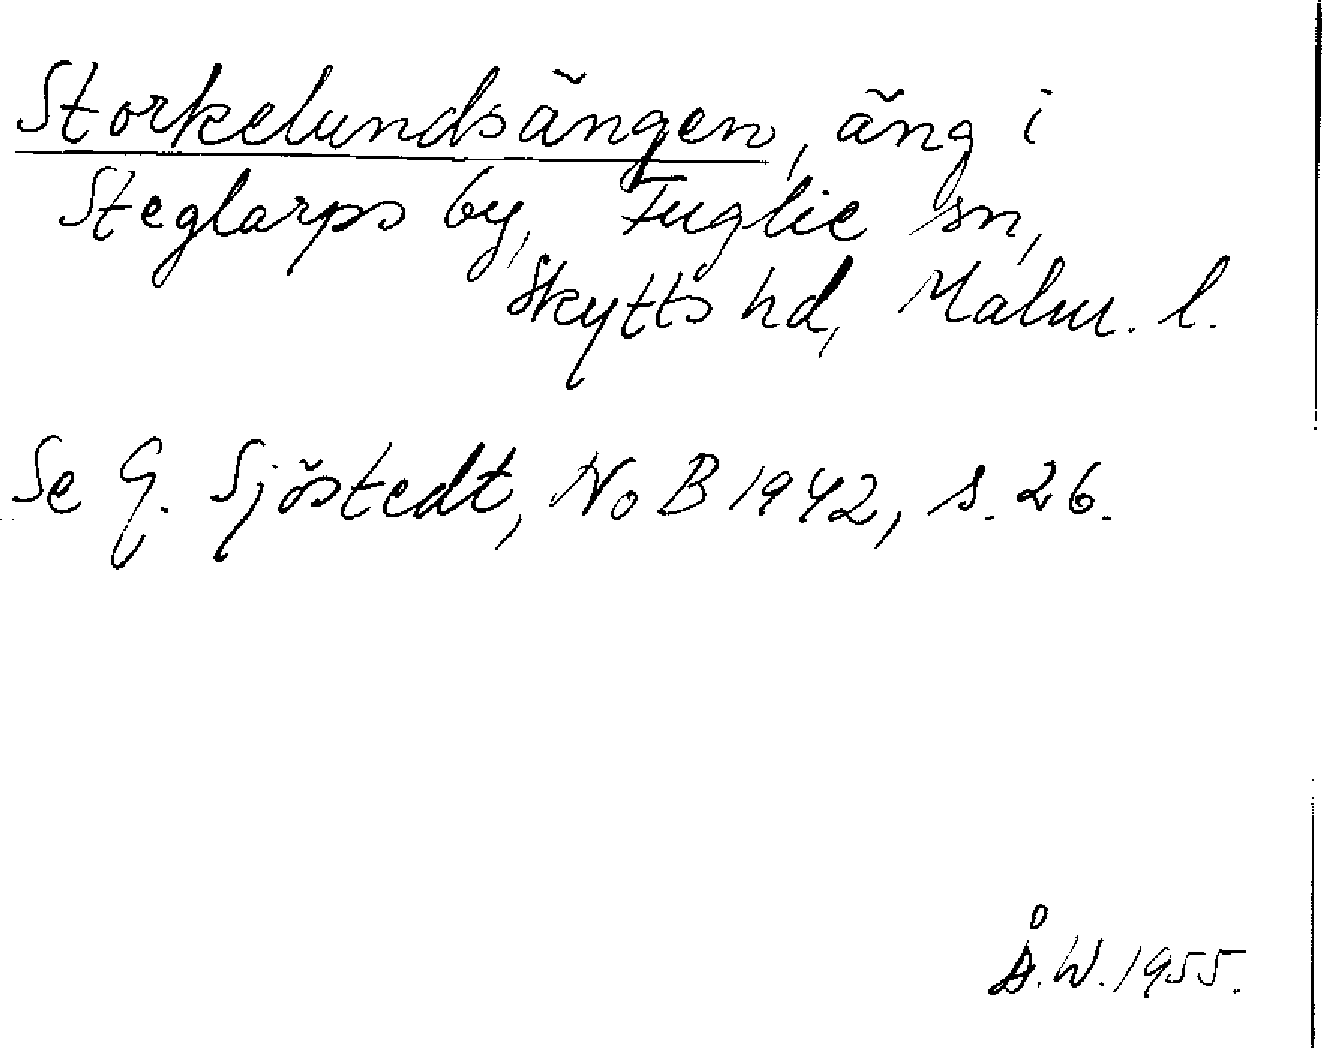 Storkelundsängen, äng i
Steglarps by, Fuglie sn,
Skytts hd, Malm. l.
Se G. Sjöstedt, NoB 1942, s. 26.
Å.W. 1955.